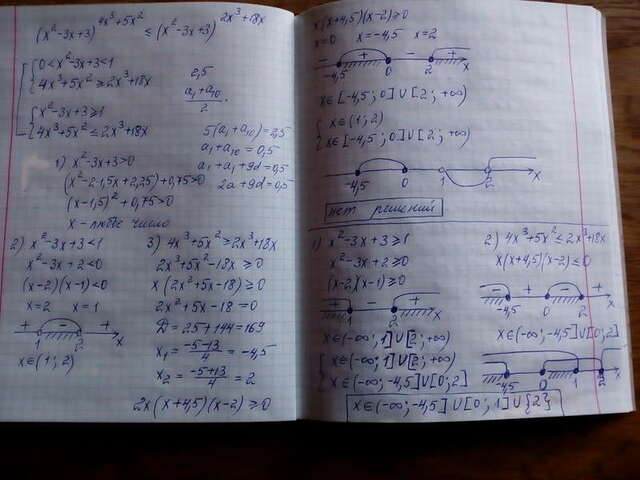 (x²-3x+3)^(4x³+5x²) ≤ (x²-3x+3)^(2x³+18x)
{ 0<x²-3x+3<1
{ 4x³+5x² ≥ 2x³+18x
{ x²-3x+3≥1
{ 4x³+5x² ≤ 2x³+18x
2,5
(a₁+a₁₀)/2 ·
5(a₁+a₁₀)=2,5
a₁+a₁₀=0,5
a₁+a₁+9d=0,5
2a+9d=0,5
1) x²-3x+3>0
(x²-2·1,5x+2,25)+0,75>0
(x-1,5)²+0,75>0
x-любое число
2) x²-3x+3<1
x²-3x+2<0
(x-2)(x-1)<0
x=2 x=1
+ - +
1 2 x
x∈(1; 2)
3) 4x³+5x²≥2x³+18x
2x³+5x²-18x≥0
x(2x²+5x-18)≥0
2x²+5x-18=0
D=25+144=169
x₁=(-5-13)/4=-4,5
x₂=(-5+13)/4=2
2x(x+4,5)(x-2)≥0
x(x+4,5)(x-2)≥0
x=0 x=-4,5 x=2
- + - +
-4,5 0 2 x
x∈[-4,5; 0]∪[2; +∞)
{ x∈(1; 2)
{ x∈[-4,5; 0]∪[2; +∞)
-4,5 0 1 2 x
нет решений
1) x²-3x+3≥1
x²-3x+2≥0
(x-2)(x-1)≥0
+ - +
1 2 x
x∈(-∞; 1]∪[2; +∞)
2) 4x³+5x²≤2x³+18x
x(x+4,5)(x-2)≤0
- + - +
-4,5 0 2 x
x∈(-∞; -4,5]∪[0; 2]
{ x∈(-∞; 1]∪[2; +∞)
{ x∈(-∞; -4,5]∪[0; 2]
-4,5 0 1 2 x
x∈(-∞; -4,5]∪[0; 1]∪{2}